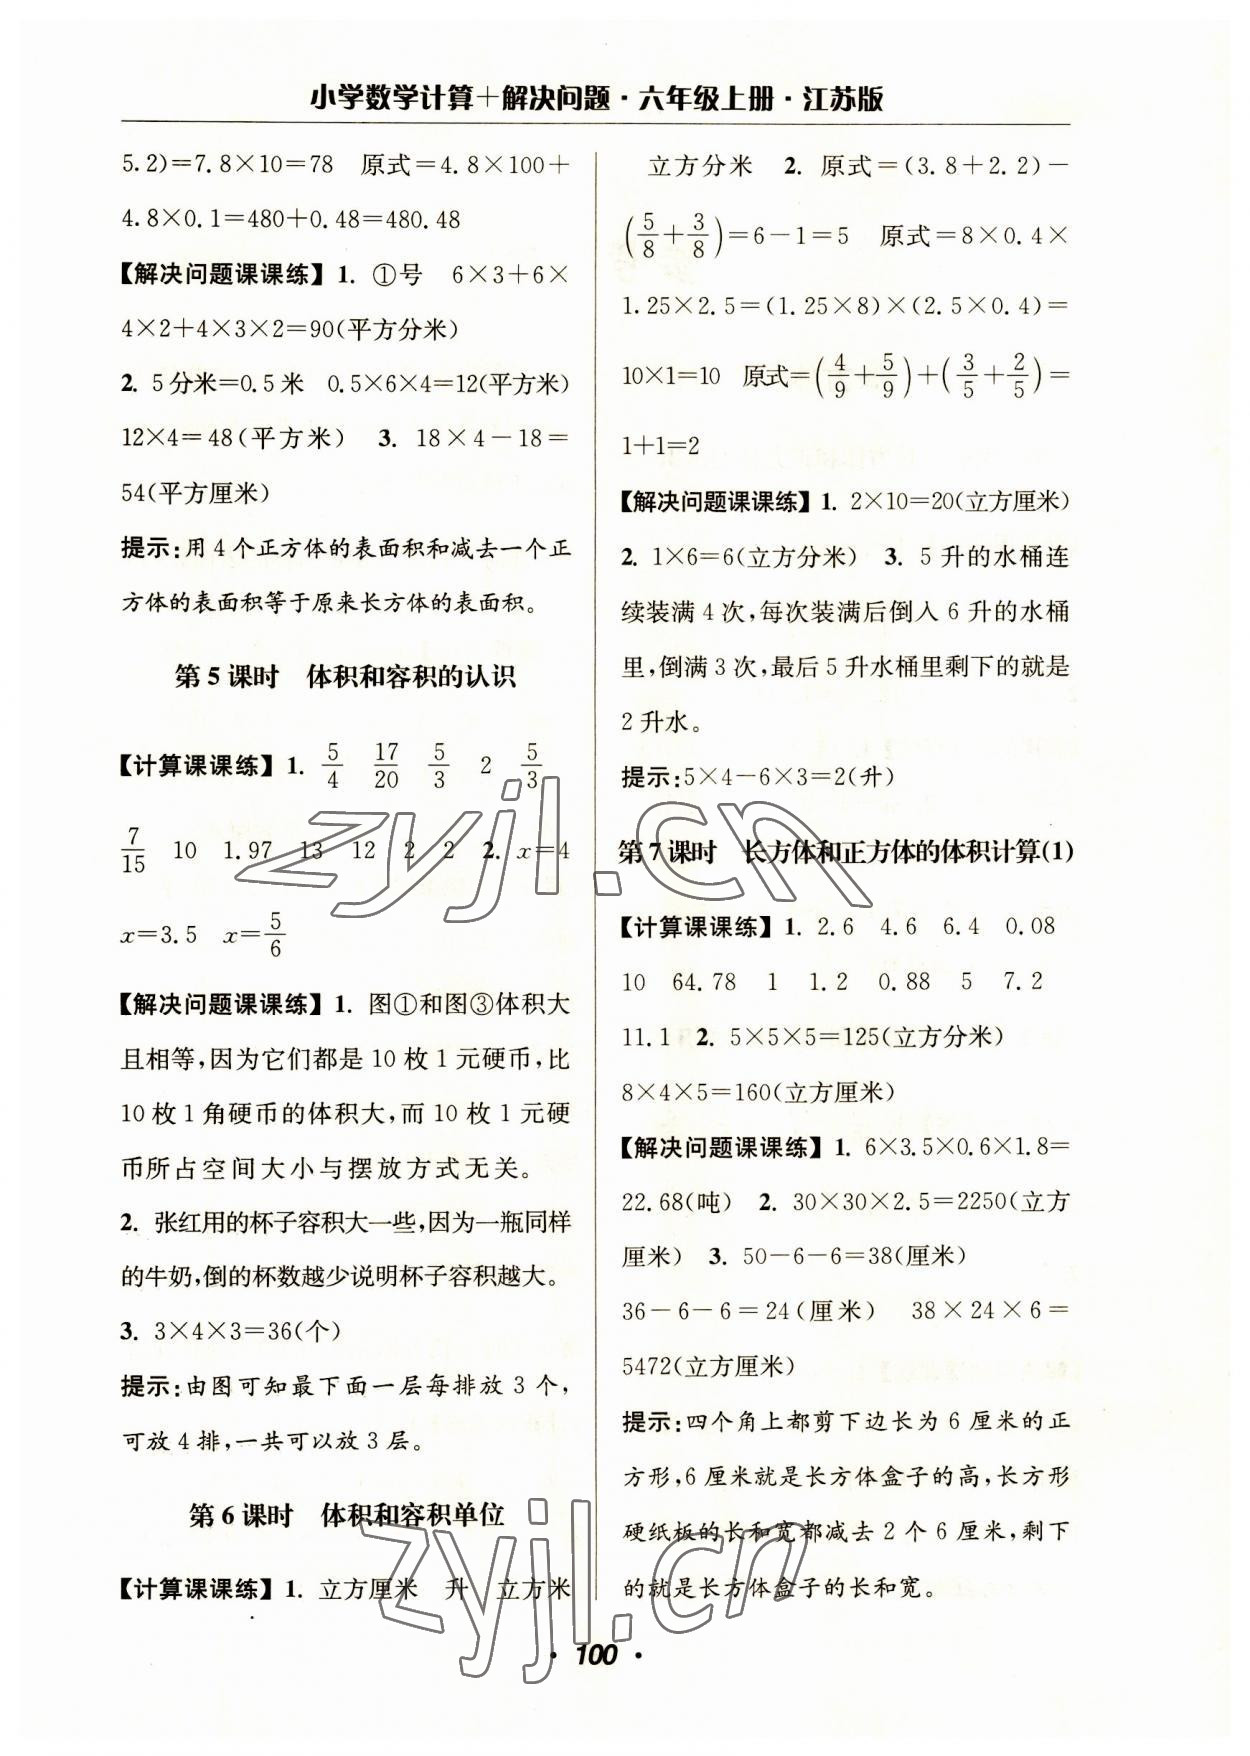 小学数学计算+解决问题·六年级上册·江苏版
5.2)=7.8×10=78 原式=4.8×100+
4.8×0.1=480+0.48=480.48
【解决问题课课练】1. ①号 6×3+6×
4×2+4×3×2=90(平方分米)
2. 5分米=0.5米 0.5×6×4=12(平方米)
12×4=48(平方米) 3. 18×4-18=
54(平方厘米)
提示:用4个正方体的表面积和减去一个正
方体的表面积等于原来长方体的表面积。
第5课时 体积和容积的认识
【计算课课练】1. 5/4 17/20 5/3 2 5/3
7/15 10 1.97 13 12 2 2 2. x=4
x=3.5 x=5/6
【解决问题课课练】1. 图①和图③体积大
且相等,因为它们都是10枚1元硬币,比
10枚1角硬币的体积大,而10枚1元硬
币所占空间大小与摆放方式无关。
2. 张红用的杯子容积大一些,因为一瓶同样
的牛奶,倒的杯数越少说明杯子容积越大。
3. 3×4×3=36(个)
提示:由图可知最下面一层每排放3个,
可放4排,一共可以放3层。
第6课时 体积和容积单位
【计算课课练】1. 立方厘米 升 立方米
立方分米 2. 原式=(3.8+2.2)-
(5/8+3/8)=6-1=5 原式=8×0.4×
1.25×2.5=(1.25×8)×(2.5×0.4)=
10×1=10 原式=(4/9+5/9)+(3/5+2/5)=
1+1=2
【解决问题课课练】1. 2×10=20(立方厘米)
2. 1×6=6(立方分米) 3. 5升的水桶连
续装满4次,每次装满后倒入6升的水桶
里,倒满3次,最后5升水桶里剩下的就是
2升水。
提示:5×4-6×3=2(升)
第7课时 长方体和正方体的体积计算(1)
【计算课课练】1. 2.6 4.6 6.4 0.08
10 64.78 1 1.2 0.88 5 7.2
11.1 2. 5×5×5=125(立方分米)
8×4×5=160(立方厘米)
【解决问题课课练】1. 6×3.5×0.6×1.8=
22.68(吨) 2. 30×30×2.5=2250(立方
厘米) 3. 50-6-6=38(厘米)
36-6-6=24(厘米) 38×24×6=
5472(立方厘米)
提示:四个角上都剪下边长为6厘米的正
方形,6厘米就是长方体盒子的高,长方形
硬纸板的长和宽都减去2个6厘米,剩下
的就是长方体盒子的长和宽。
·100·
zyjl.cn
zyjl.cn